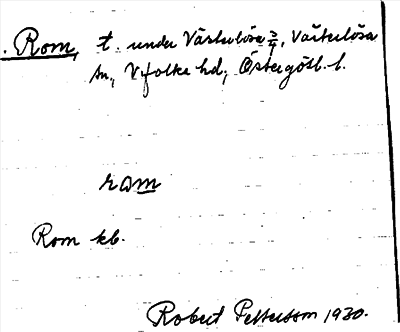 Rom, t. under Västerlösa 2/4, Västerlösa
sn., Vifolka hd, Östergötl. l.
ram
Rom kb.
Robert Pettersson 1930.